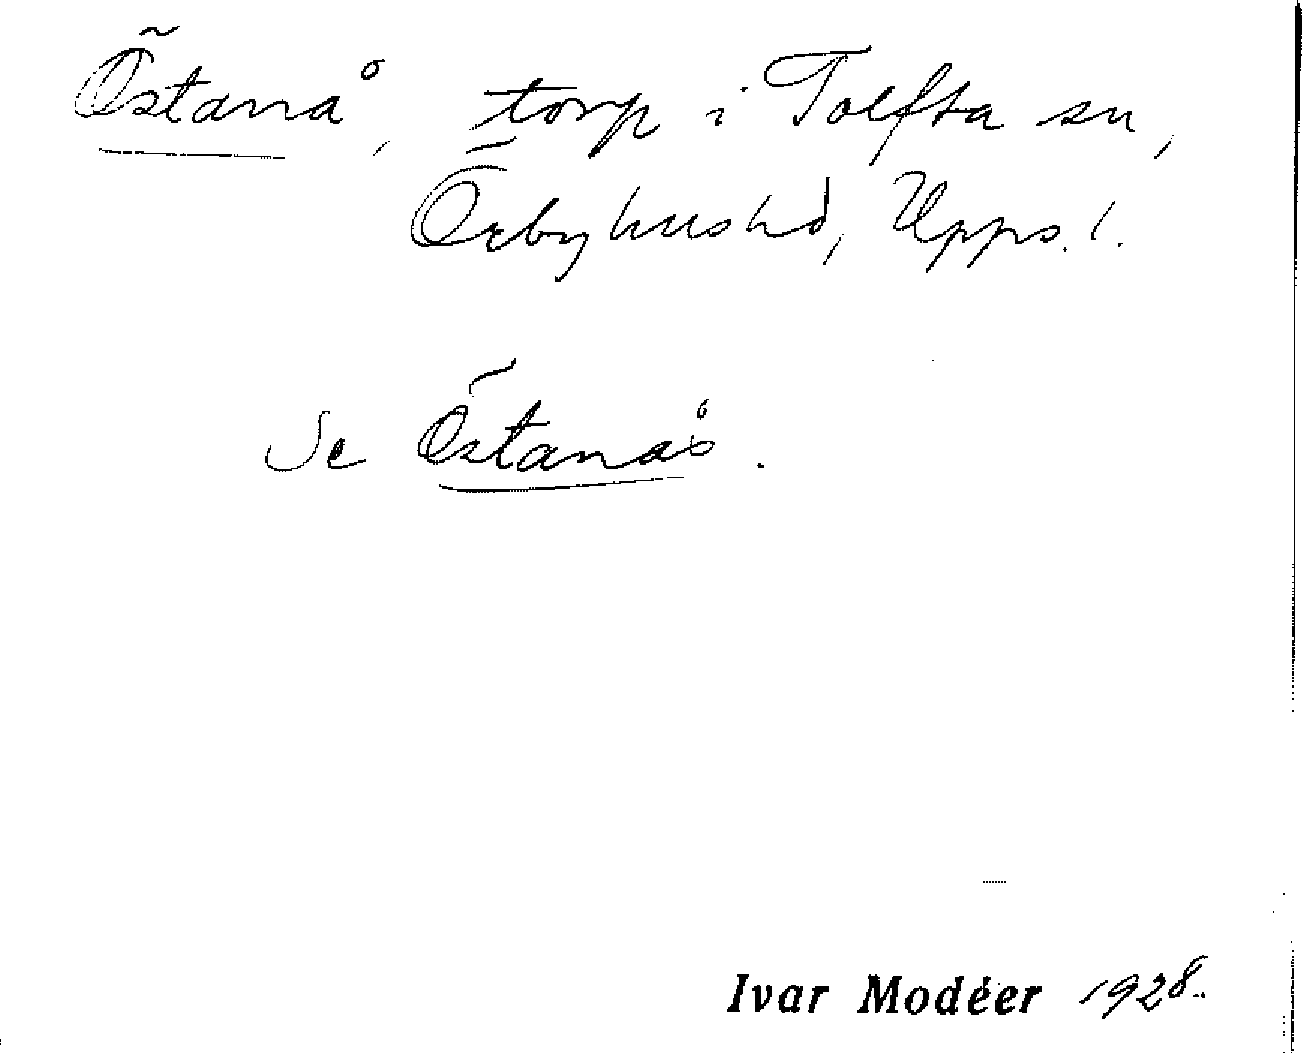 Östanå, torp i Tolfta sn,
Örbyhus hd, Upps. l.
Se Östanås.
Ivar Modéer 1928.